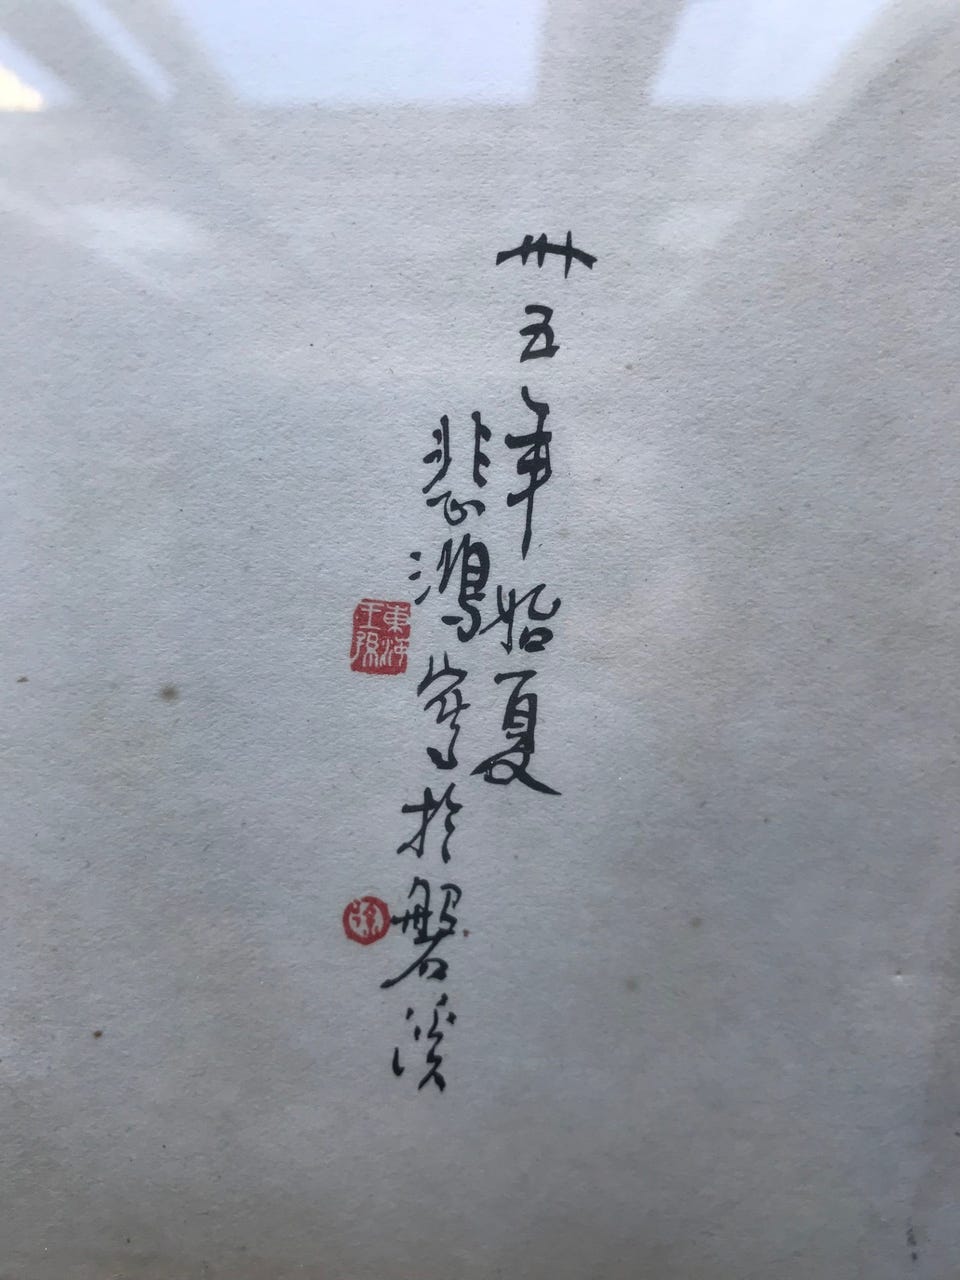 卅五年始夏
悲鴻寫於磐溪
東海王孫
徐